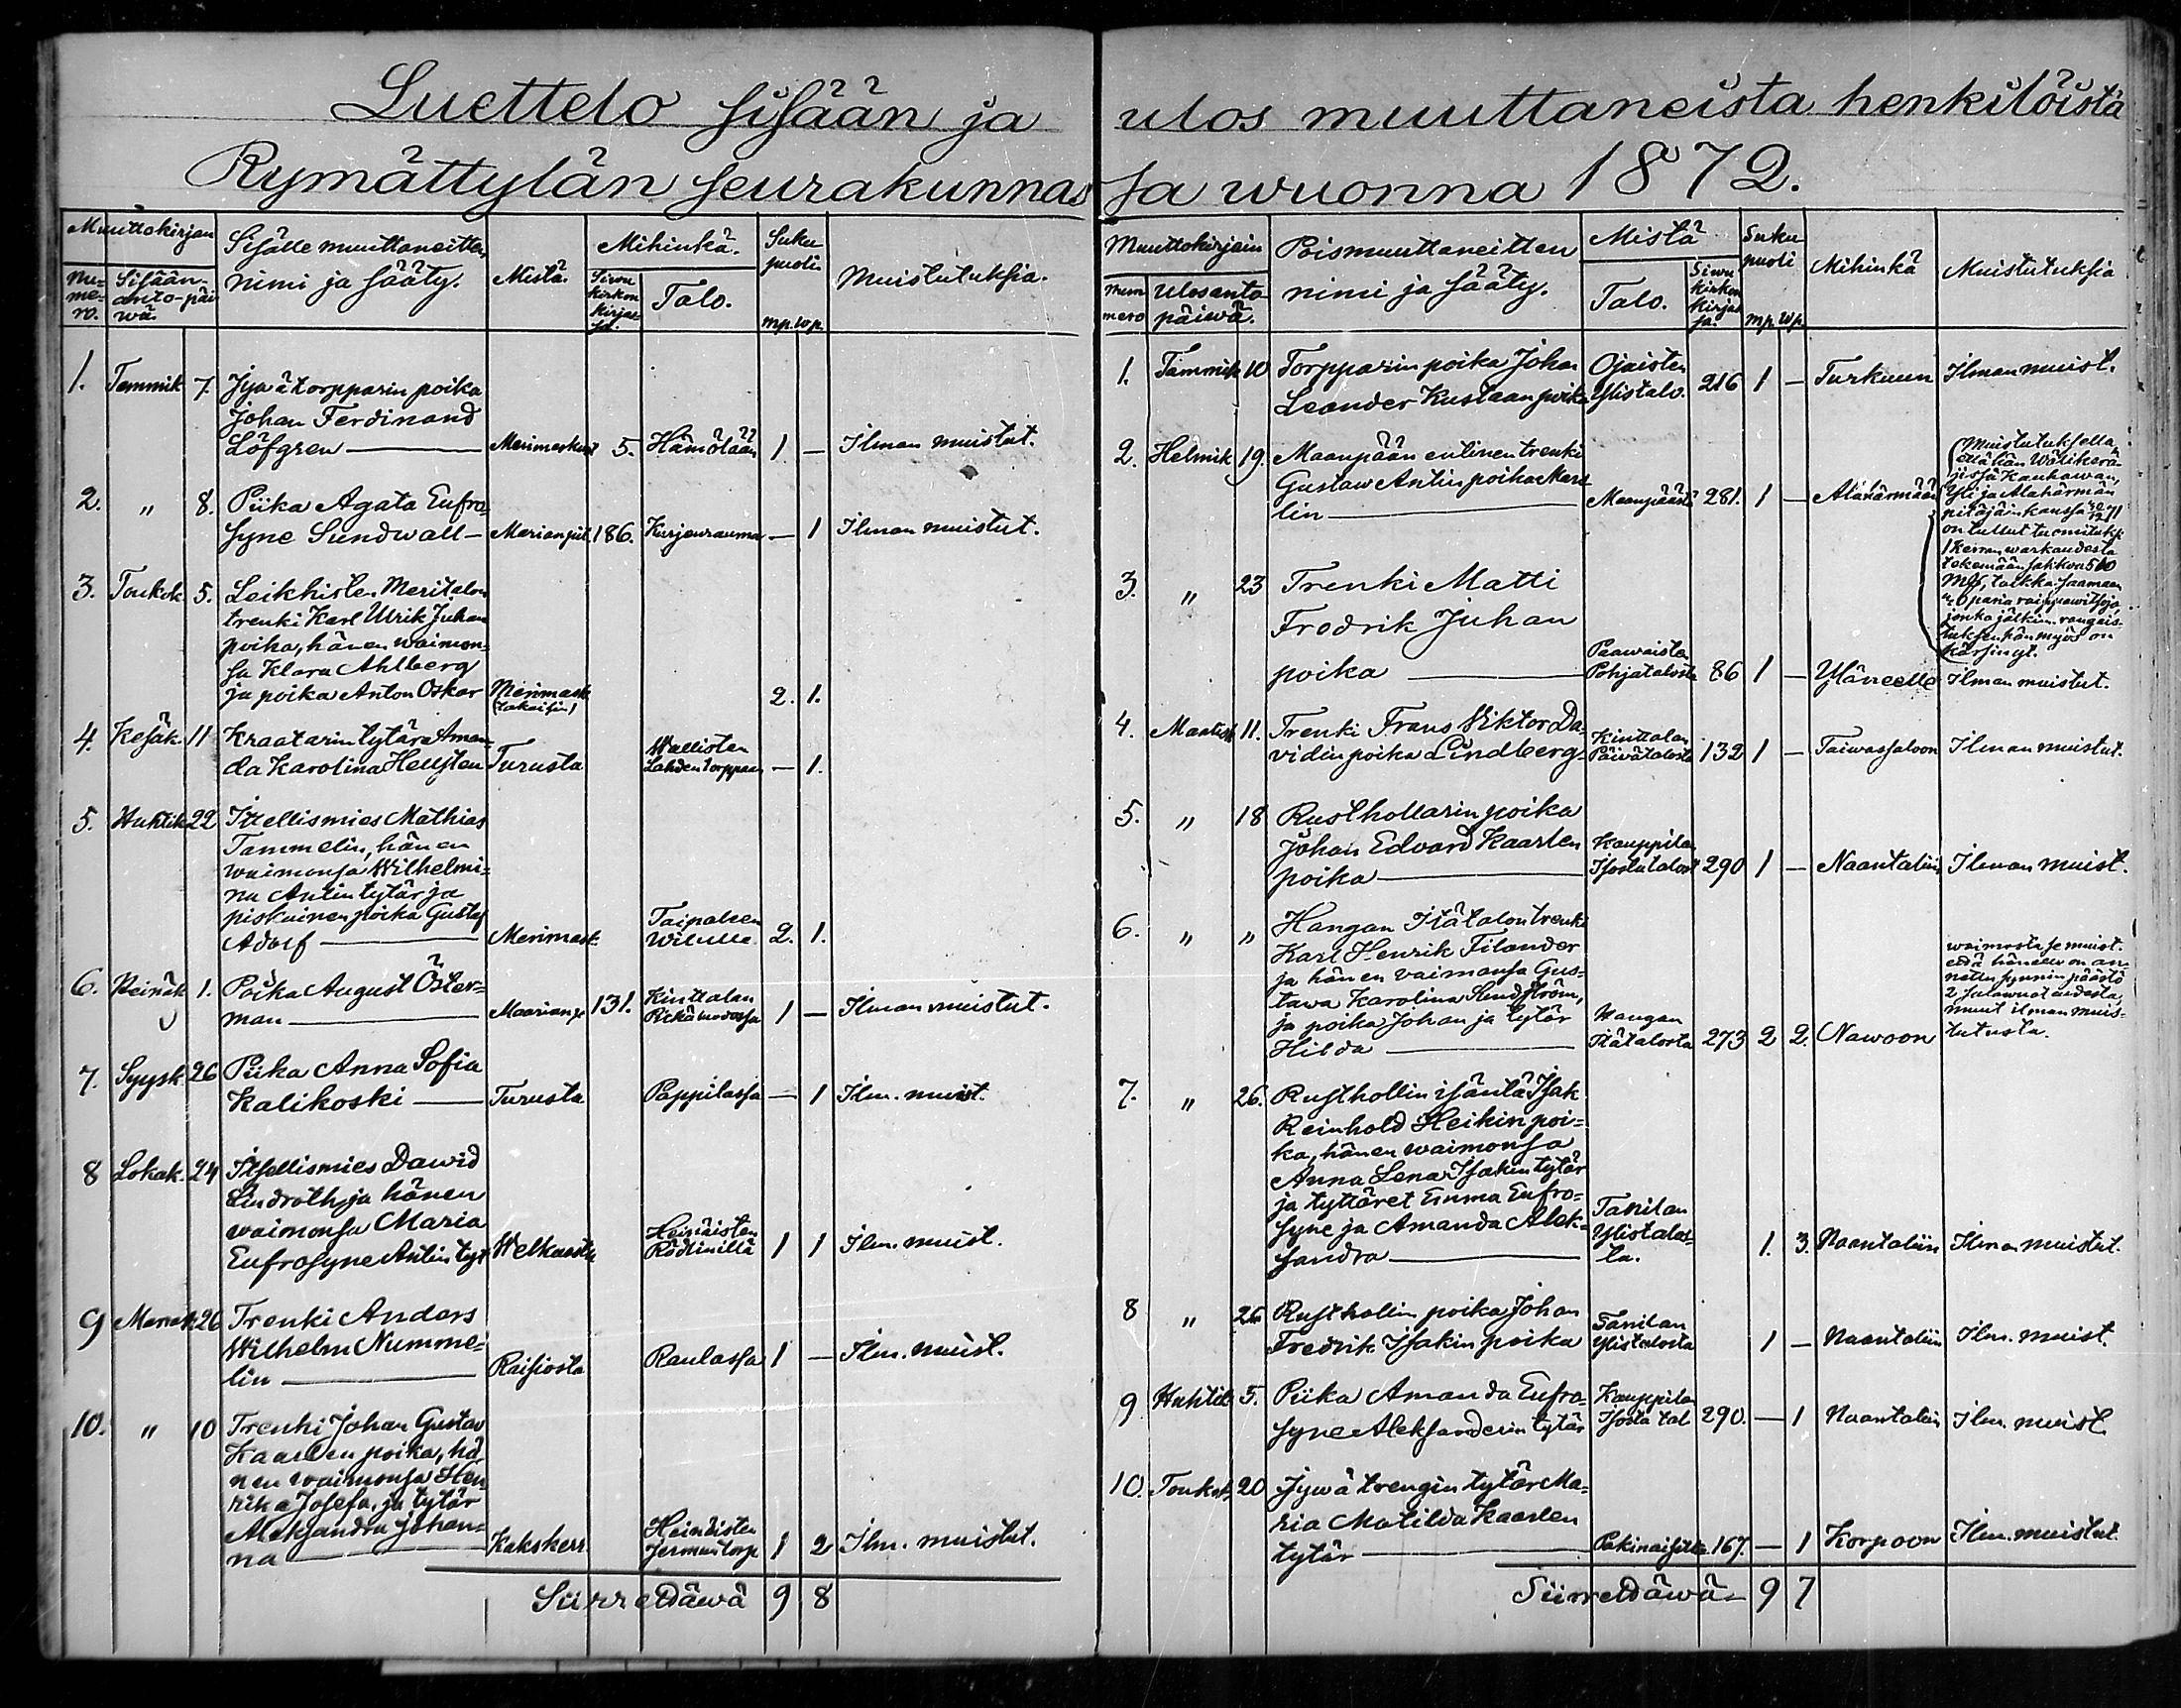 Luettelo sisään ja ulos muuttaneista henkilöistä
Rymättylän seurakunnassa wuonna 1872.
Muuttokirjan
Nu=
me=
ro.
Sisään-
anto-päi
wä
Sisälle muuttaneitten
nimi ja sääty.
Mistä.
Mihinkä.
Siwu
kirkon
kirjas=
sa.
Talo.
Suku
puoli
mp. wp.
Muistutuksia.
1. Tammik 7. Jywätorpparin poika
Johan Ferdinand
Löfgren — Merimasku 5. Hämölään 1 — Ilman muistut.
2. " 8. Piika Agata Eufro=
syne Sundwall — Marian pit. 186. Kurjenrauma — 1 Ilman muistut.
3. Toukok. 5. Leikkisten Meritalon
trenki Karl Ulrik Juhan
poika, hänen waimon=
sa Klara Ahlberg
ja poika Anton Oskar Merimask 2. 1.
(takaisin)
4. Kesäk. 11 Kraatarin tytär Aman=
da Karolina Hellsten Turusta Wallisten
Lahden torppaan — 1.
5. Huhtik 22 Itsellismies Mathias
Tammelin, hänen
waimonsa Wilhelmi=
na Antin tytär ja
piskuinen poika Gustaf
Adolf — Merimask. Taipaleen
2. 1.
6. Heinäk 1. Poika August Öster=
man — Maarian p. 131. Kinttalan
1 — Ilman muistut.
7. Syysk. 26 Piika Anna Sofia
Kalikoski — Turusta Pappilassa — 1 Ilm. muist.
8 Lokak. 24 Itsellismies Dawid
Lindroth ja hänen
waimonsa Maria
Eufrosyne Antin tyt Welkualta Heinäisten
Rödlinillä 1 1 Ilm. muist.
9 Marrask 26 Trenki Anders
Wilhelm Numme=
lin — Raisiosta Raulassa 1 — Ilm. muist.
10. " 10 Trenki Johan Gustav
Kaarlen poika, hä
nen waimonsa Hen
rika Josefa, ja tytär
Aleksandra Johan=
na — Kakskerr. Heinäisten
Jermuntorp 1 2 Ilm. muistut.
Siirrettäwä 9 8
Muuttokirjain
Num
mero
Ulosanto
päiwä.
Poismuuttaneitten
nimi ja sääty.
Mistä
Talo.
Siwu
kirkon
kirjas
sa.
Suku
puoli
mp. wp.
Mihinkä
Muistutuksia
1. Tammik 10 Torpparin poika Johan Ojaisten
Leander Kustaan poika Ylistalo. 216 1 — Turkuun Ilman muist.
2. Helmik 19. Maanpään entinen trenki
Gustaw Antin poika Mass
lin — Maanpäästä 281. 1 — Alahärmään
(Muistutuksella,
että hän Wälikerä=
jissä Kauhawan,
Yli ja Alahärmän
pitäjäin kanssa
on tullut tuomituksi
1 kerran warkaudesta
tekemään sakkoa 560
mk, taikka saamaan
paria raippawitsoja,
jonka jälkim. rangais=
tuksen hän myös on
kärsinyt.
3. " 23 Trenki Matti
Fredrik Juhan
poika — Paawaisten
Pohjatalosta 86 1 — Yläneelle Ilman muistut.
4. Maalisk 11. Trenki Frans Wiktor Da=
vidin poika Lindberg — Kinttalan
Päiwätalosta 132 1 — Taiwassaloon Ilman muistut.
5. " 18 Rusthollarin poika
Johan Edvard Kaarlen
poika — Kauppilan
Isostatalost 290 1 — Naantaliin Ilman muist.
6. " " Hangan Itätalon trenki
Karl Henrik Filander
ja hänen vaimonsa Gus=
tawa Karolina Sundström,
ja poika Johan ja tytär
Hilda — Hangan
Itätalosta 273 2 2. Nawoon
waimosta se muist.
että hänelle on an=
nettu synnin päästö
2 salawuoteudesta,
muut ilman muis=
tutusta.
7. " 26. Rusthollin isäntä Isak
Reinhold Heikin poi=
ka, hänen waimonsa
Anna Lena Isakin tytär
ja tyttäret Emma Eufro=
syne ja Amanda Alek=
sandra — Tanilan
Ylistalos=
ta. 1. 3. Naantaliin Ilman muistut.
8 " 26 Rusthollin poika Johan
Fredrik Isakin poika Tanilan
Ylistalosta 1 — Naantaliin Ilm. muist.
9 Huhtik 5. Piika Amanda Eufro=
syne Aleksanderin tytär Kauppilan
Isosta tal 290. — 1 Naantaliin Ilm. muist.
10. Toukok. 20 Jywä trengin tytär Ma=
ria Matilda Kaarlen
tytär — 167. — 1 Korpoon Ilm. muistut.
Siirrettäwä — 9 7